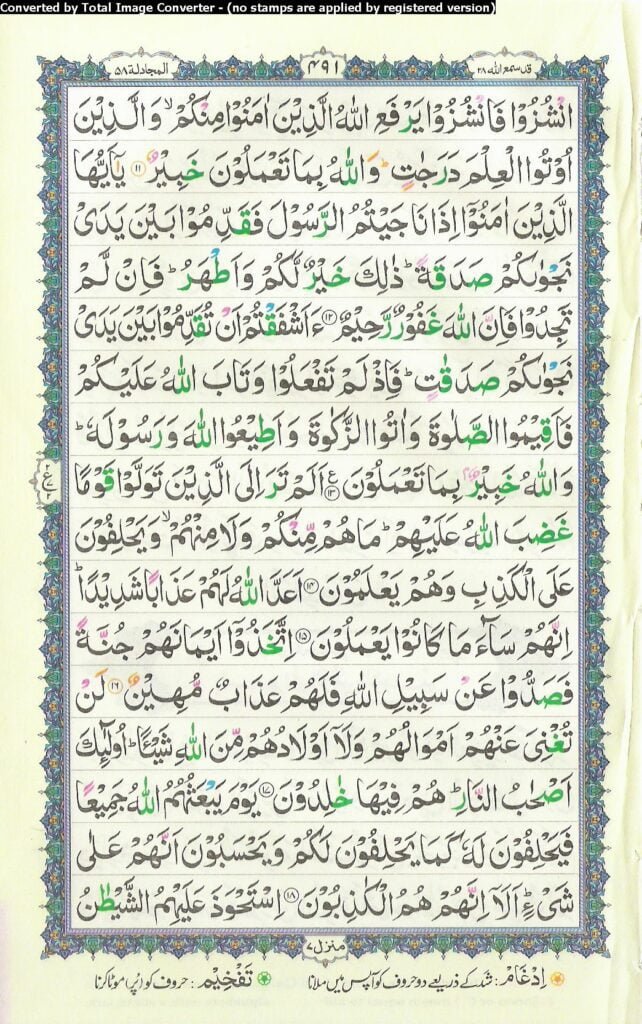 Converted by Total Image Converter - (no stamps are applied by registered version)
قد سمع الله ٢٨
٤٩١
المجادلة ٥٨
انْشُزُوْا فَانْشُزُوْا يَرْفَعِ اللّٰهُ الَّذِيْنَ اٰمَنُوْا مِنْكُمْ ۙ وَالَّذِيْنَ
اُوْتُوا الْعِلْمَ دَرَجٰتٍ ؕ وَاللّٰهُ بِمَا تَعْمَلُوْنَ خَبِيْرٌ ۝۱۱ يٰۤاَيُّهَا
الَّذِيْنَ اٰمَنُوْۤا اِذَا نَاجَيْتُمُ الرَّسُوْلَ فَقَدِّمُوْا بَيْنَ يَدَىْ
نَجْوٰىكُمْ صَدَقَةً ؕ ذٰلِكَ خَيْرٌ لَّكُمْ وَاَطْهَرُ ؕ فَاِنْ لَّمْ
تَجِدُوْا فَاِنَّ اللّٰهَ غَفُوْرٌ رَّحِيْمٌ ۝۱۲ ءَاَشْفَقْتُمْ اَنْ تُقَدِّمُوْا بَيْنَ يَدَىْ
نَجْوٰىكُمْ صَدَقٰتٍ ؕ فَاِذْ لَمْ تَفْعَلُوْا وَتَابَ اللّٰهُ عَلَيْكُمْ
فَاَقِيْمُوا الصَّلٰوةَ وَاٰتُوا الزَّكٰوةَ وَاَطِيْعُوا اللّٰهَ وَرَسُوْلَهٗ ؕ
وَاللّٰهُ خَبِيْرٌۢ بِمَا تَعْمَلُوْنَ ۝۱۳ ع اَلَمْ تَرَ اِلَى الَّذِيْنَ تَوَلَّوْا قَوْمًا
غَضِبَ اللّٰهُ عَلَيْهِمْ ؕ مَا هُمْ مِّنْكُمْ وَلَا مِنْهُمْ ۙ وَيَحْلِفُوْنَ
عَلَى الْكَذِبِ وَهُمْ يَعْلَمُوْنَ ۝۱۴ اَعَدَّ اللّٰهُ لَهُمْ عَذَابًا شَدِيْدًا ؕ
اِنَّهُمْ سَآءَ مَا كَانُوْا يَعْمَلُوْنَ ۝۱۵ اِتَّخَذُوْۤا اَيْمَانَهُمْ جُنَّةً
فَصَدُّوْا عَنْ سَبِيْلِ اللّٰهِ فَلَهُمْ عَذَابٌ مُّهِيْنٌ ۝۱۶ لَنْ
تُغْنِىَ عَنْهُمْ اَمْوَالُهُمْ وَلَاۤ اَوْلَادُهُمْ مِّنَ اللّٰهِ شَيْئًا ؕ اُولٰٓئِكَ
اَصْحٰبُ النَّارِ ؕ هُمْ فِيْهَا خٰلِدُوْنَ ۝۱۷ يَوْمَ يَبْعَثُهُمُ اللّٰهُ جَمِيْعًا
فَيَحْلِفُوْنَ لَهٗ كَمَا يَحْلِفُوْنَ لَكُمْ وَيَحْسَبُوْنَ اَنَّهُمْ عَلٰى
شَىْءٍ ؕ اَلَاۤ اِنَّهُمْ هُمُ الْكٰذِبُوْنَ ۝۱۸ اِسْتَحْوَذَ عَلَيْهِمُ الشَّيْطٰنُ
منزل ٧
اِدْغَام: شد کے ذریعے دو حروف کو آپس میں ملانا تَفْخِيْم: حروف کو (پُر) موٹا کرنا